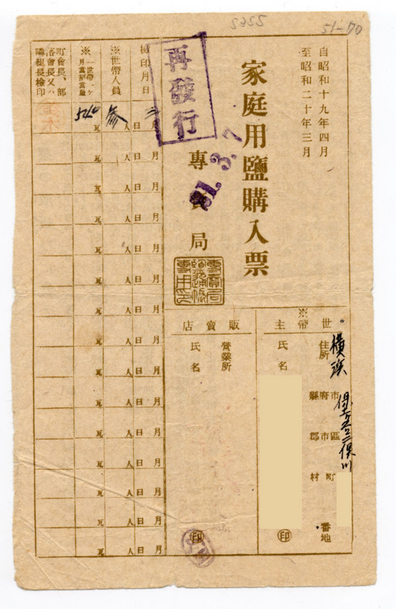 51-70
5255
自昭和十九年四月
至昭和二十年三月
家庭用鹽購入票
再發行
21.3.7
專賣局
※
世帶主
住所
橫濱
縣府市
郡市區
村町
番地
氏名
印
販賣店
營業所
氏名
印
檢印月日
※世帶人員
※一世帶一ヶ月當數量
町會長、部落會長又ハ隣組長檢印
月日
人
瓦
參
540
月日 人 瓦
月日 人 瓦
月日 人 瓦
月日 人 瓦
月日 人 瓦
月日 人 瓦
月日 人 瓦
月日 人 瓦
月日 人 瓦
月日 人 瓦
月日 人 瓦
月日 人 瓦
月日 人 瓦